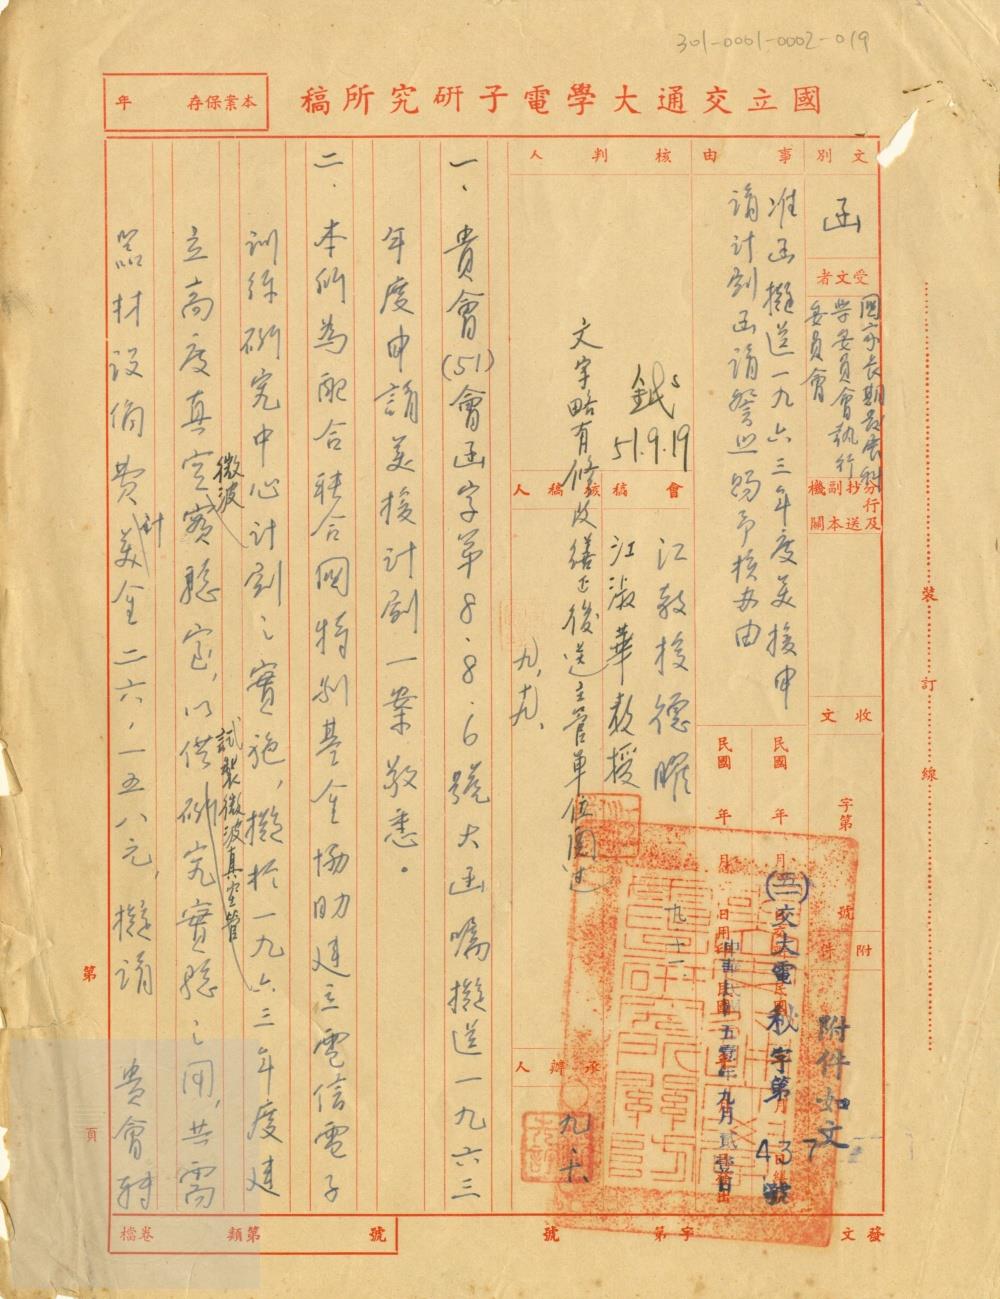 301-0001-0002-019
國立交通大學電子研究所稿
本案保存 年
文別
函
受文者
國家長期發展科
學委員會執行
委員會
分行及
抄送
副本
機關
收文
字第 號
附件
附件如文
事由
准函擬送一九六三年度美援申
請計劃函請詧照賜予核辦由
民國 年 月
民國 年 月 日
(五一)交大電秘字第437號
中華民國五壹年九月貳壹日
核判人
51.9.19
文字略有修改繕正後送主管單位閱过
會稿
核稿人
江教授德曜
江淑華教授
九、十九、
九、十一
承辦人
九、十、
一、貴會(51)會函字第8.8.6號大函囑擬送一九六三
年度申請美援計劃一案敬悉。
二.本所為配合聯合國特別基金協助建立電信電子
訓練研究中心計劃之實施,擬於一九六三年度建
立高度真空實驗室,以供研究實驗之用,共需
微波
試製微波真空管
器材設備費美金二六,一五八元,擬請 貴會轉
計
裝 訂 線
第 頁
發文 字第 號
檔卷 第 類 號